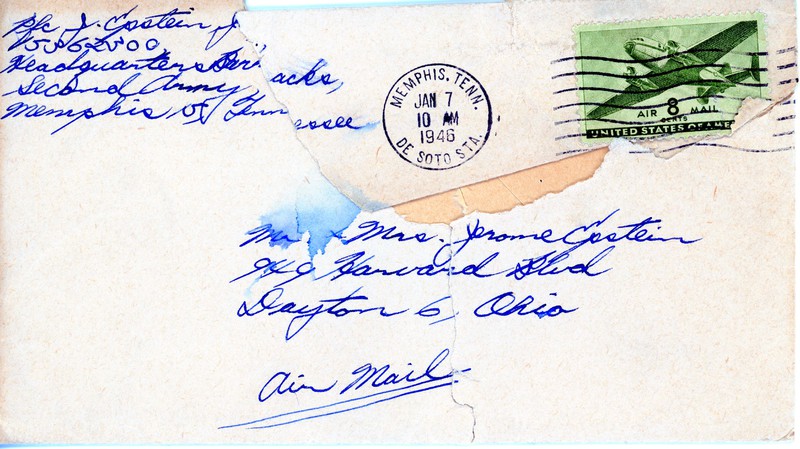 Pfc J. Epstein J
Headquarters acks,
Second Army
Memphis Tennessee
MEMPHIS, TENN.
JAN 7
10 AM
1946
DE SOTO STA.
AIR 8 MAIL
CENTS
UNITED STATES OF AME
Mr Mrs. Jerome Epstein
Harvard Blvd
Dayton 6, Ohio
Air Mail